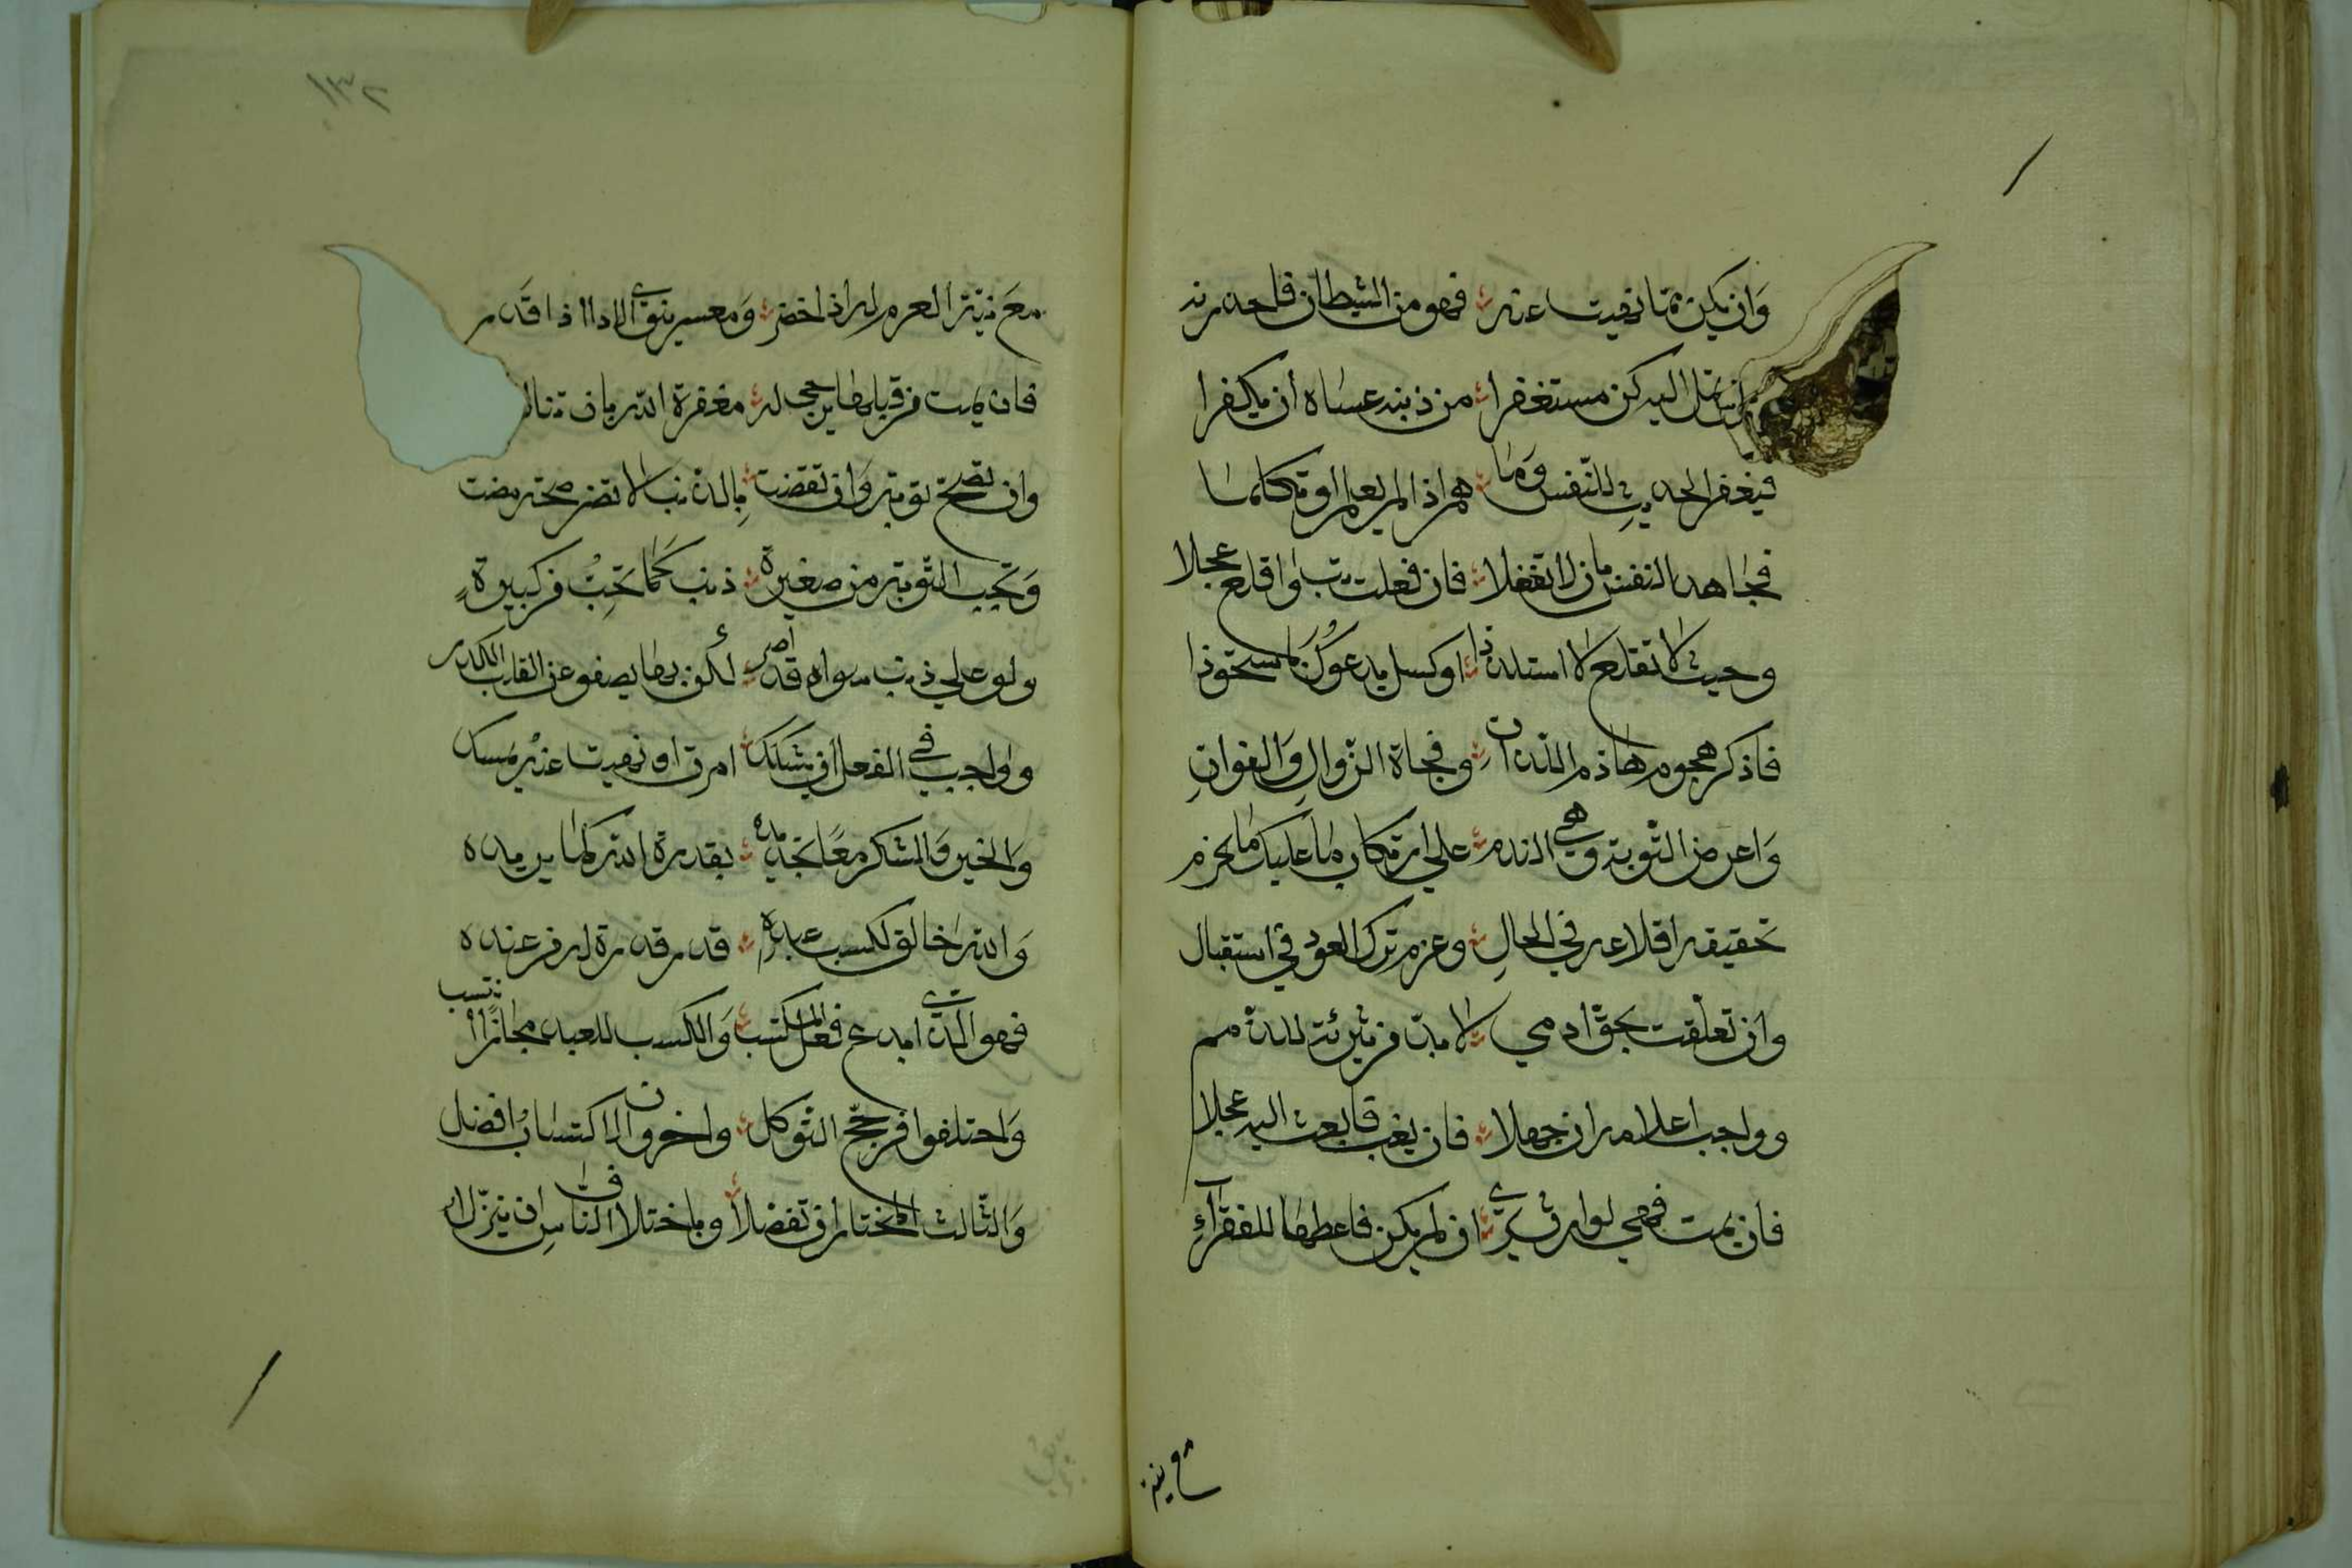 وان يكن مما نهيت عنه فهو من الشيطان فاحذرنه
ان تمل اليه كن مستغفرا من ذنبه عساه أن يكفرا
فيغفر الحديث للنفس وما هم اذا لم يعمل او تكلما
فجاهد النفس بان لا تفعلا فان فعلت تب واقلع عجلا
وحيث لا تقلع لا ستلذاذ او كسل يدعوك باستحواذ
فاذكر هجوم هاذم اللذات وفجأة الزوال والفوات
واعرض التوبة وهي الندم على ارتكاب ما عليك يحرم
تحقيقه اقلاعه في الحال وعزم ترك العود في استقبال
وان تعلقت بحق ادمي لا بد من تبرئة للذمم
وواجب اعلامه ان جهلا فان يغب فابعث اليه عجلا
فان يمت فهي لوارث يرى ان لم يكن فاعطها للفقراء
مع نية
١٣٢
مع نية الغرم له اذا حضر ومعسر ينوي الادا اذا قدر
فان يمت من قبلها يرجى له مغفرة الله بان تناله
وان تصح توبة وان تقضت بالذنب لا تضر صحة مضت
وتجب التوبة من صغيرة ذنب كما تجب من كبيرة
ولو على ذنب سواه قد اصر لكن بها يصفو عن القلب الكدر
وواجب في الفعل اذ يشكك امرت او نهيت عنه يمسك
والخير والشر معا تجديده بقدرة الله كما يريده
والله خالق لكسب عبده قدر قدرة له من عنده
فهو الذي ابدع فعل المكتسب والكسب للعبد مجازا ينتسب
واختلفوا فرجح التوكل واخرون الاكتساب افضل
والثالث المختار ان تفضلا وباختلاف الناس ان ينزلا